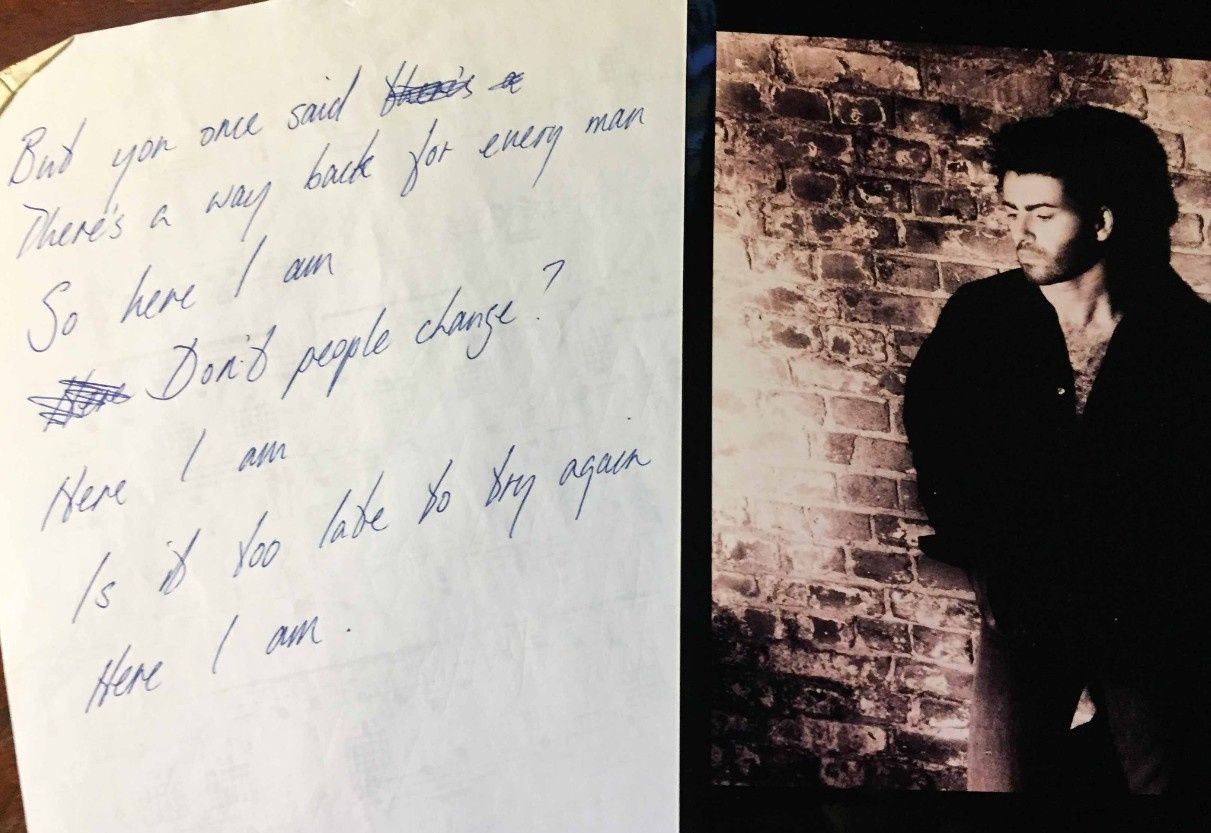 But you once said there's a
There's a way back for every man
So here I am
Here Don't people change?
Here I am
Is it too late to try again
Here I am.